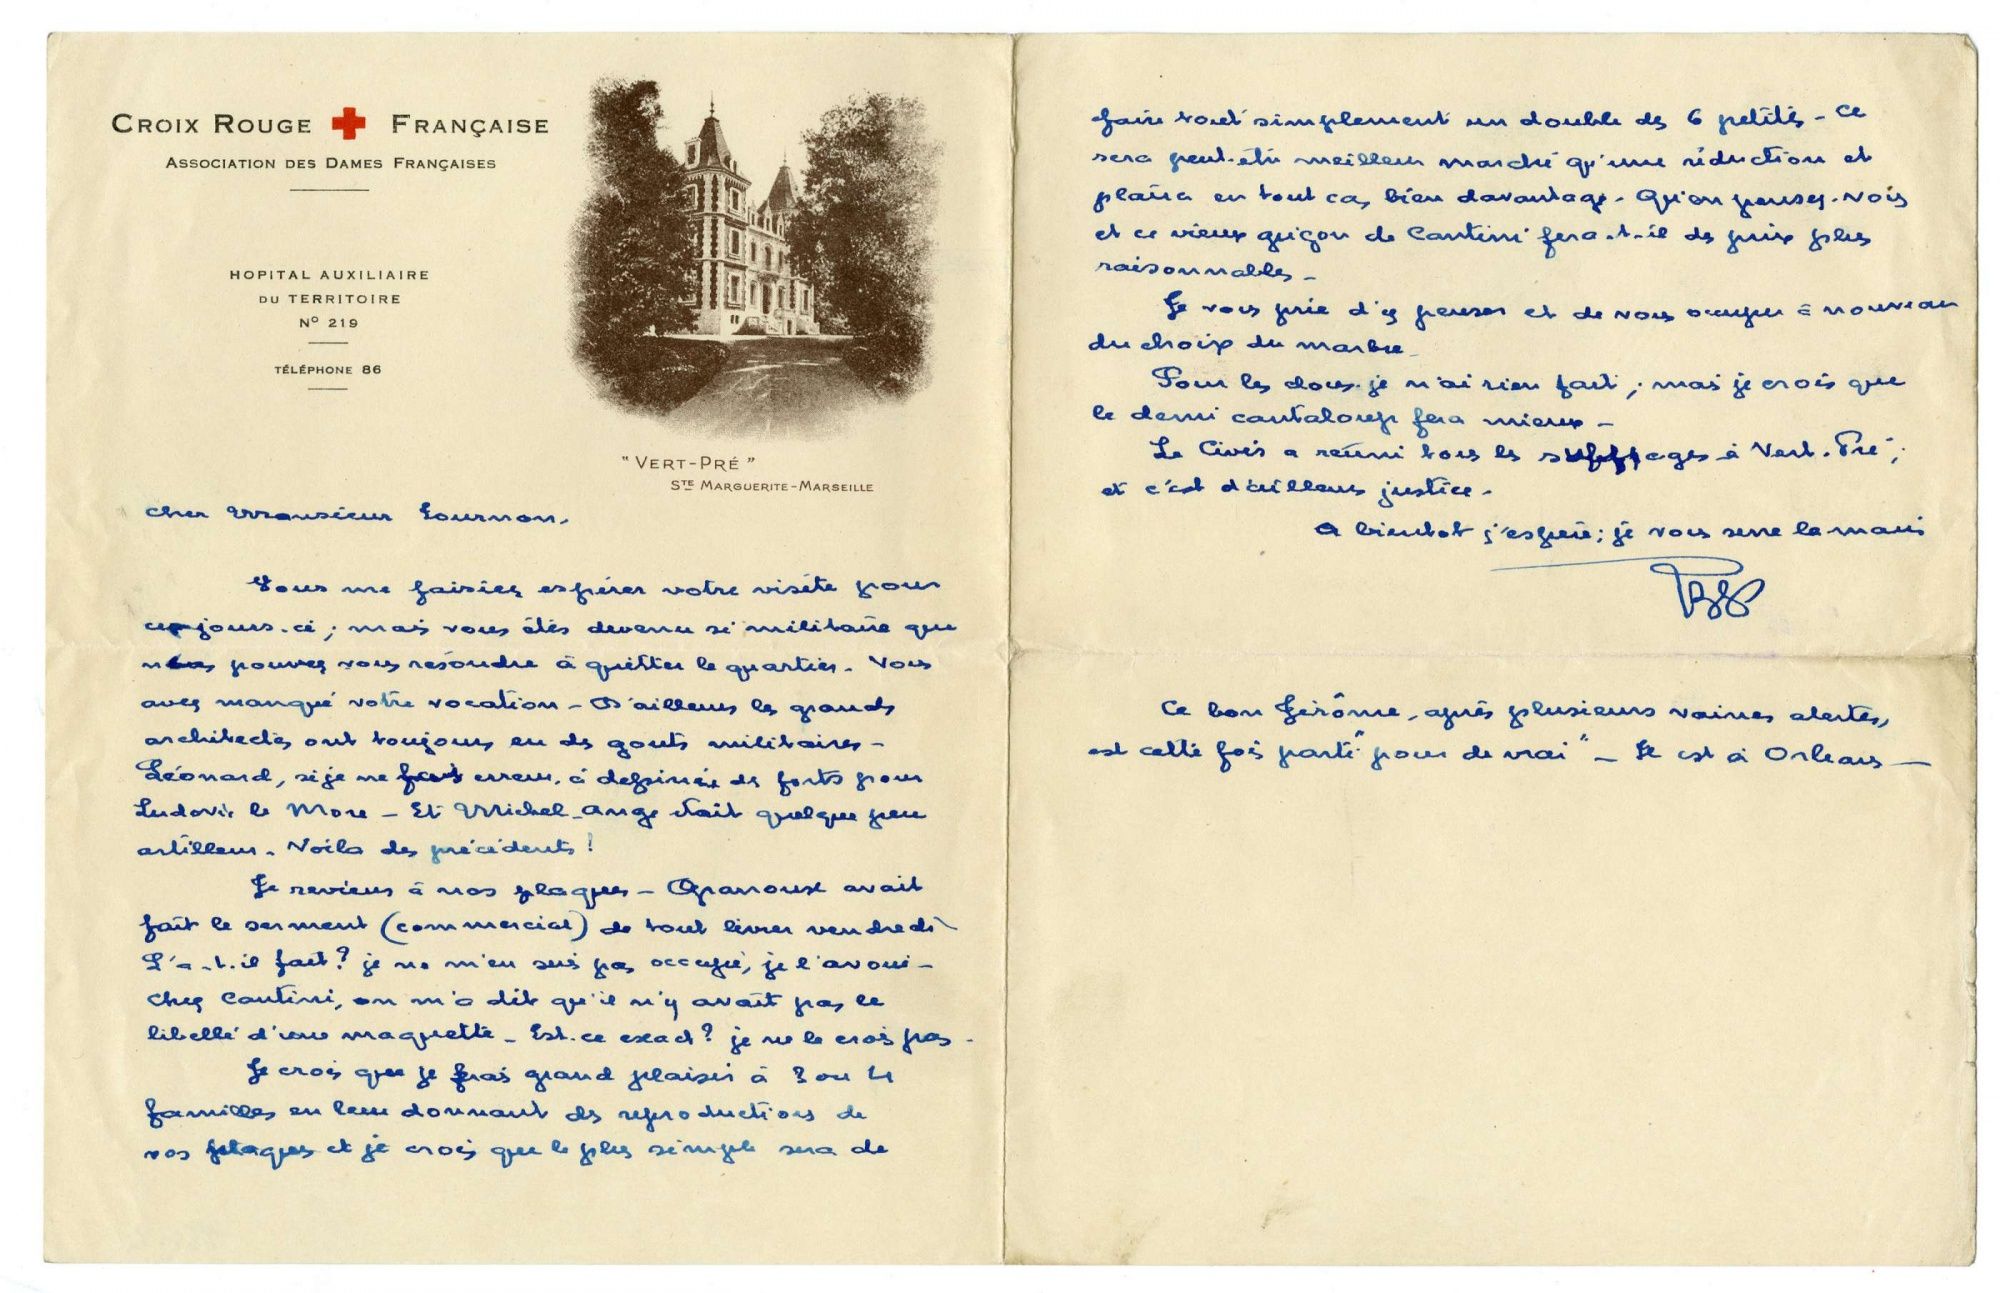 CROIX ROUGE FRANÇAISE
ASSOCIATION DES DAMES FRANÇAISES
HOPITAL AUXILIAIRE
DU TERRITOIRE
No 219
TÉLÉPHONE 86
"VERT-PRÉ"
STE MARGUERITE-MARSEILLE
Cher Monsieur Tournon,
Vous me faisiez espérer votre visite pour
ces jours-ci ; mais vous êtes devenu si militaire que
pouvez vous résoudre à quitter le quartier. Vous
avez manqué votre vocation - D'ailleurs les grands
architectes ont toujours eu des gouts militaires -
Léonard, si je ne fais erreur, a dessiné des forts pour
Ludovic le More - Et Michel-Ange était quelque peu
artilleur. Voila des précédents !
Je reviens à nos plaques - Granoux avait
fait le serment (commercial) de tout livrer vendredi
L'a-t-il fait ? je ne m'en suis pas occupé, je l'avoue -
Chez Cantini, on m'a dit qu'il n'y avait pas le
libellé d'une maquette - Est-ce exact ? je ne le crois pas -
Je crois que je ferais grand plaisir à 3 ou 4
familles en leur donnant des reproductions de
vos plaques et je crois que le plus simple sera de
faire tout simplement un double des 6 petites - Ce
sera peut-être meilleur marché qu'une réduction et
plaira en tout cas bien davantage. Qu'en pensez-vous
et ce vieux de Cantini fera-t-il des prix plus
raisonnables -
Je vous prie d'y penser et de vous occuper à nouveau
du choix du marbre -
Pour les clous je n'ai rien fait ; mais je crois que
le demi cantaloup fera mieux -
Le Civis a réuni tous les suffrages à Vert-Pré ;
et c'est d'ailleurs justice -
A bientot j'espère ; je vous serre la main
Ce bon Jérôme, après plusieurs vaines alertes,
est cette fois parti "pour de vrai" - Il est à Orléans -